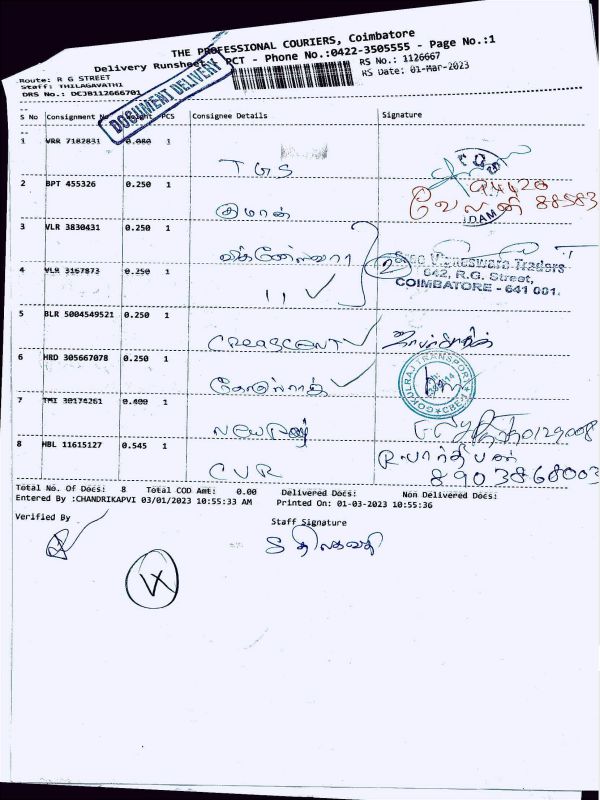 THE PROFESSIONAL COURIERS, Coimbatore
Delivery Runsheet PCT - Phone No.:0422-3505555 - Page No.:1
Route: R G STREET
RS No.: 1126667
Staff: THILAGAVATHI
RS Date: 01-Mar-2023
DRS No.: DCJB112666701
DOCUMENT DELIVERY
S No Consignment No Weight PCS Consignee Details Signature
1 VRR 7182831 0.080 1
TGS
2 BPT 455326 0.250 1
குமரன்
94420
வேலன் 88583
3 VLR 3830431 0.250 1
விக்னேஸ்வரா
4 VLR 3167873 0.250 1
11
2
Sree Vigneswara Traders
642, R.G. Street,
COIMBATORE - 641 001.
5 BLR 5004549521 0.250 1
CRESCENT
6 HRD 305667078 0.250 1
கோகுல்ராஜ்
GOKULRAJ TRANSPORT CBE-1
7 TMI 30174261 0.400 1
8 HBL 11615127 0.545 1
CVR
R.பார்திபன்
8903868003
Total No. Of Docs: 8 Total COD Amt: 0.00 Delivered Docs: Non Delivered Docs:
Entered By :CHANDRIKAPVI 03/01/2023 10:55:33 AM Printed On: 01-03-2023 10:55:36
Verified By
Staff Signature
S திலகவதி